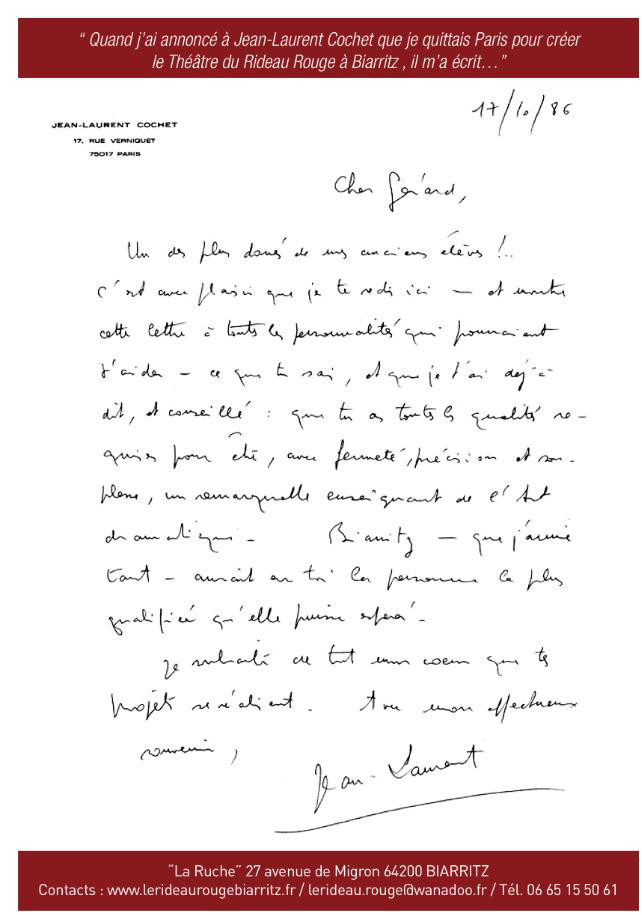 “ Quand j’ai annoncé à Jean-Laurent Cochet que je quittais Paris pour créer
le Théâtre du Rideau Rouge à Biarritz , il m’a écrit… ”
17/10/86
JEAN-LAURENT COCHET
17, RUE VERNIQUET
75017 PARIS
Cher Gérard,
Un des plus doués de mes anciens élèves !..
C'est avec plaisir que je te redis ici — et montre
cette lettre à toutes les personnalités qui pourraient
t'aider — ce que tu sais, et que je t'ai déjà
dit, et conseillé : que tu as toutes les qualités re-
quises pour être, avec fermeté, précision et sou-
plesse, un remarquable enseignant de l'Art
dramatique - Biarritz — que j'aime
tant — aurait en toi la personne la plus
qualifiée qu'elle puisse espérer -
Je souhaite de tout mon coeur que tes
projets se réalisent. Avec mon affectueux
souvenir,
Jean-Laurent
“La Ruche” 27 avenue de Migron 64200 BIARRITZ
Contacts : www.lerideaurougebiarritz.fr / lerideau.rouge@wanadoo.fr / Tél. 06 65 15 50 61